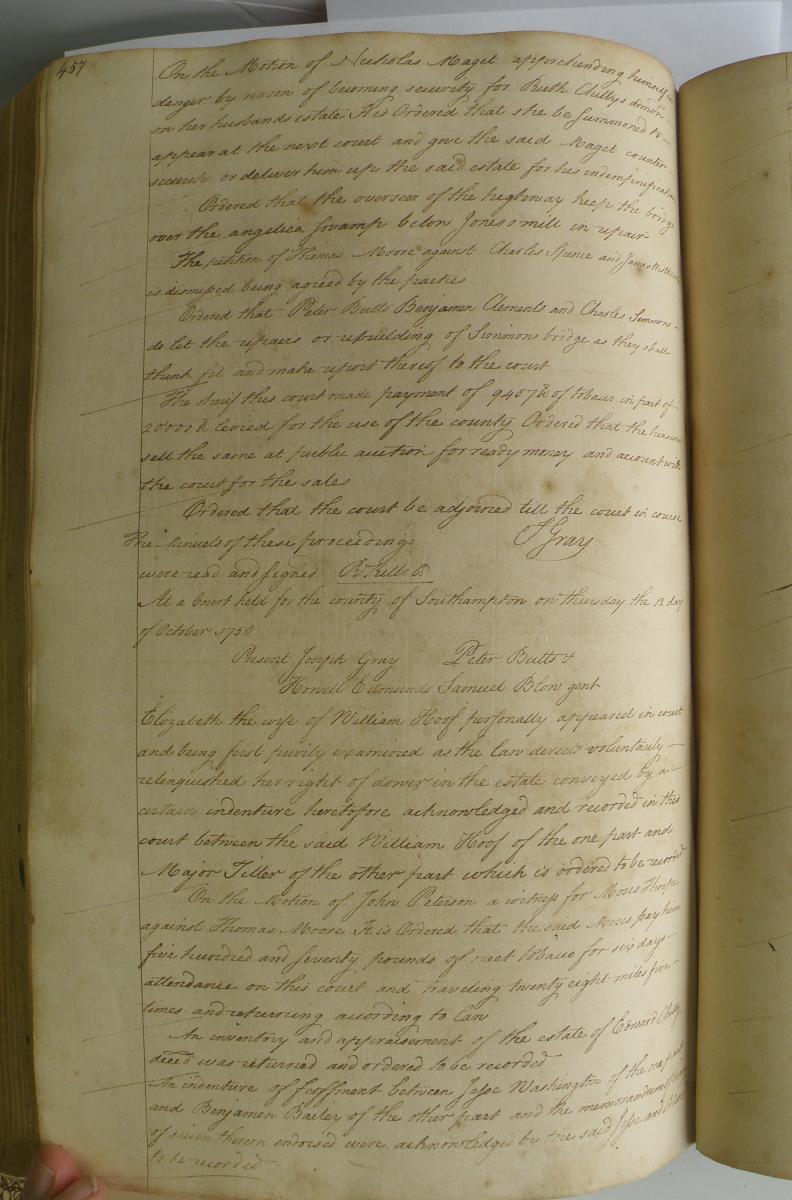 457
On the Motion of Nicholas Maget apprehending himself in
danger by reason of becoming security for Ruth Chittys
on her husbands estate It is Ordered that she be Summoned to
appear at the next court and give the said Maget counter
security or deliver him up the said estate for his indemnification
Ordered that the overseer of the highway keep the bridge
over the angelica swamp below Jones's mill in repair
The petition of Thomas Moore against Charles Spence and James
is dismissed being agreed by the parties
Ordered that Peter Butts Benjamen Clements and Charles Simmons
do let the repairs or rebuilding of Simmons bridge as they shall
think fit and make report thereof to the court
The sherif this court made payment of 9407 lb of tobacco in part of
20000 lb levied for the use of the county Ordered that the
sell the same at public auction for ready money and account with
the court for the sales
Ordered that the court be adjorned till the court in course
The Minuets of these proceedings
J Gray
were read and signed R Kello
At a Court held for the county of Southampton on thursday the 12 day
of October 1750
Present Joseph Gray Peter Butts &
Howell Edmunds Samuel Blow gent
Elizabeth the wife of William Hoof personally appeared in court
and being first privily examined as the law directs voluntarily
relinquished her right of dower in the estate conveyed by a
certain indenture heretofore acknowledged and recorded in this
court between the said William Hoof of the one part and
Major Tiller of the other part which is ordered to be record
On the Motion of John Peterson a witness for Moses Thorpe
against Thomas Moore It is Ordered that the said Moses pay him
five hundred and seventy pounds of neet tobacco for six days
attendance on this court and traveling twenty eight miles five
times and returning acording to law
An inventory and appraisement of the estate of Edward Chitty
deced was returned and ordered to be recorded
An indenture of feoffment between Jesse Washington of the one part
and Benjamen Bailey of the other part and the memorandum
of seisen thereon endorsed were acknowledged by the said Jesse and
to be recorded